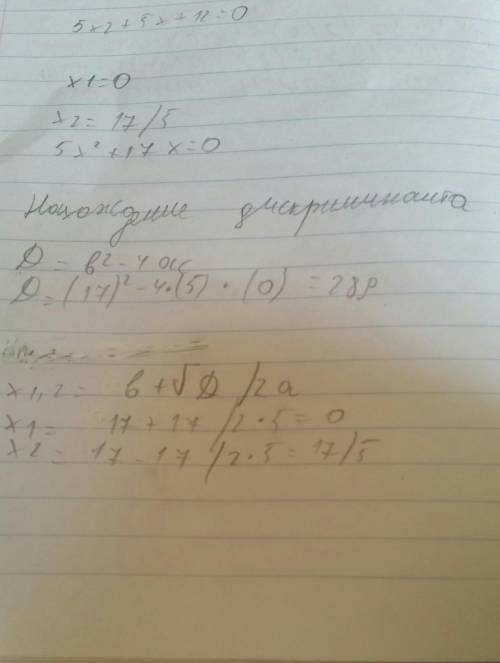 5x2+5x+12=0
x1=0
x2=17/5
5x²+17x=0
Нахождение дискриминанта
D=b2-4ac
D=(17)²-4•(5)•(0)=289
x1,2= b+√D/2a
x1= 17+17/2•5=0
x2= 17-17/2•5=17/5